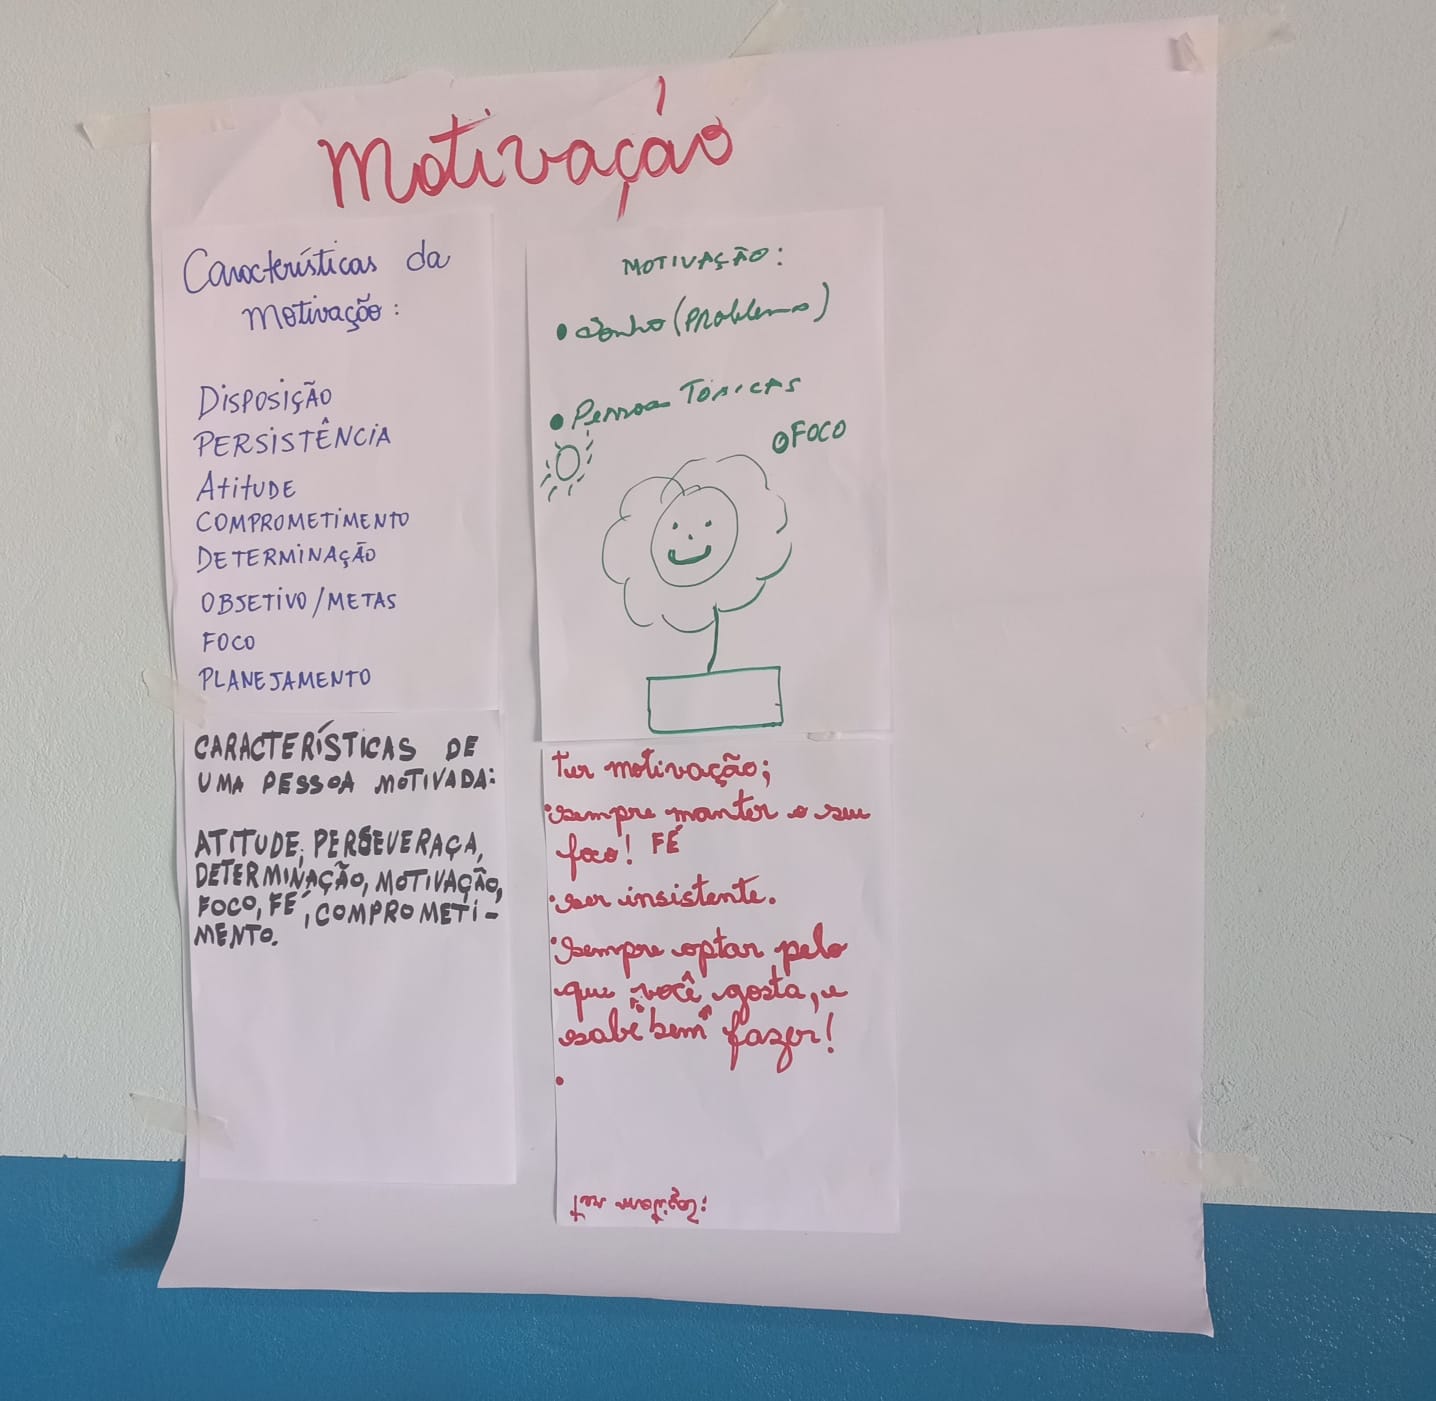 Motivação
Características da
motivação:
DISPOSIÇÃO
PERSISTÊNCIA
AtitUDE
COMPROMETIMENTO
DETERMINAÇÃO
OBJETIVO/METAS
FOCO
PLANEJAMENTO
CARACTERÍSTICAS DE
UMA PESSOA MOTIVADA:
ATITUDE, PERSEVERAÇA,
DETERMINAÇÃO, MOTIVAÇÃO,
FOCO, FÉ, COMPROMETI-
MENTO.
MOTIVAÇÃO:
• Sonho (Problema)
• Pessoa TÓXICAS
FOCO
Ter motivação;
• sempre manter o seu
foco! FÉ
• ser insistente.
• Sempre optar pelo
que "você" gosta, e
sabe "bem" fazer!
•